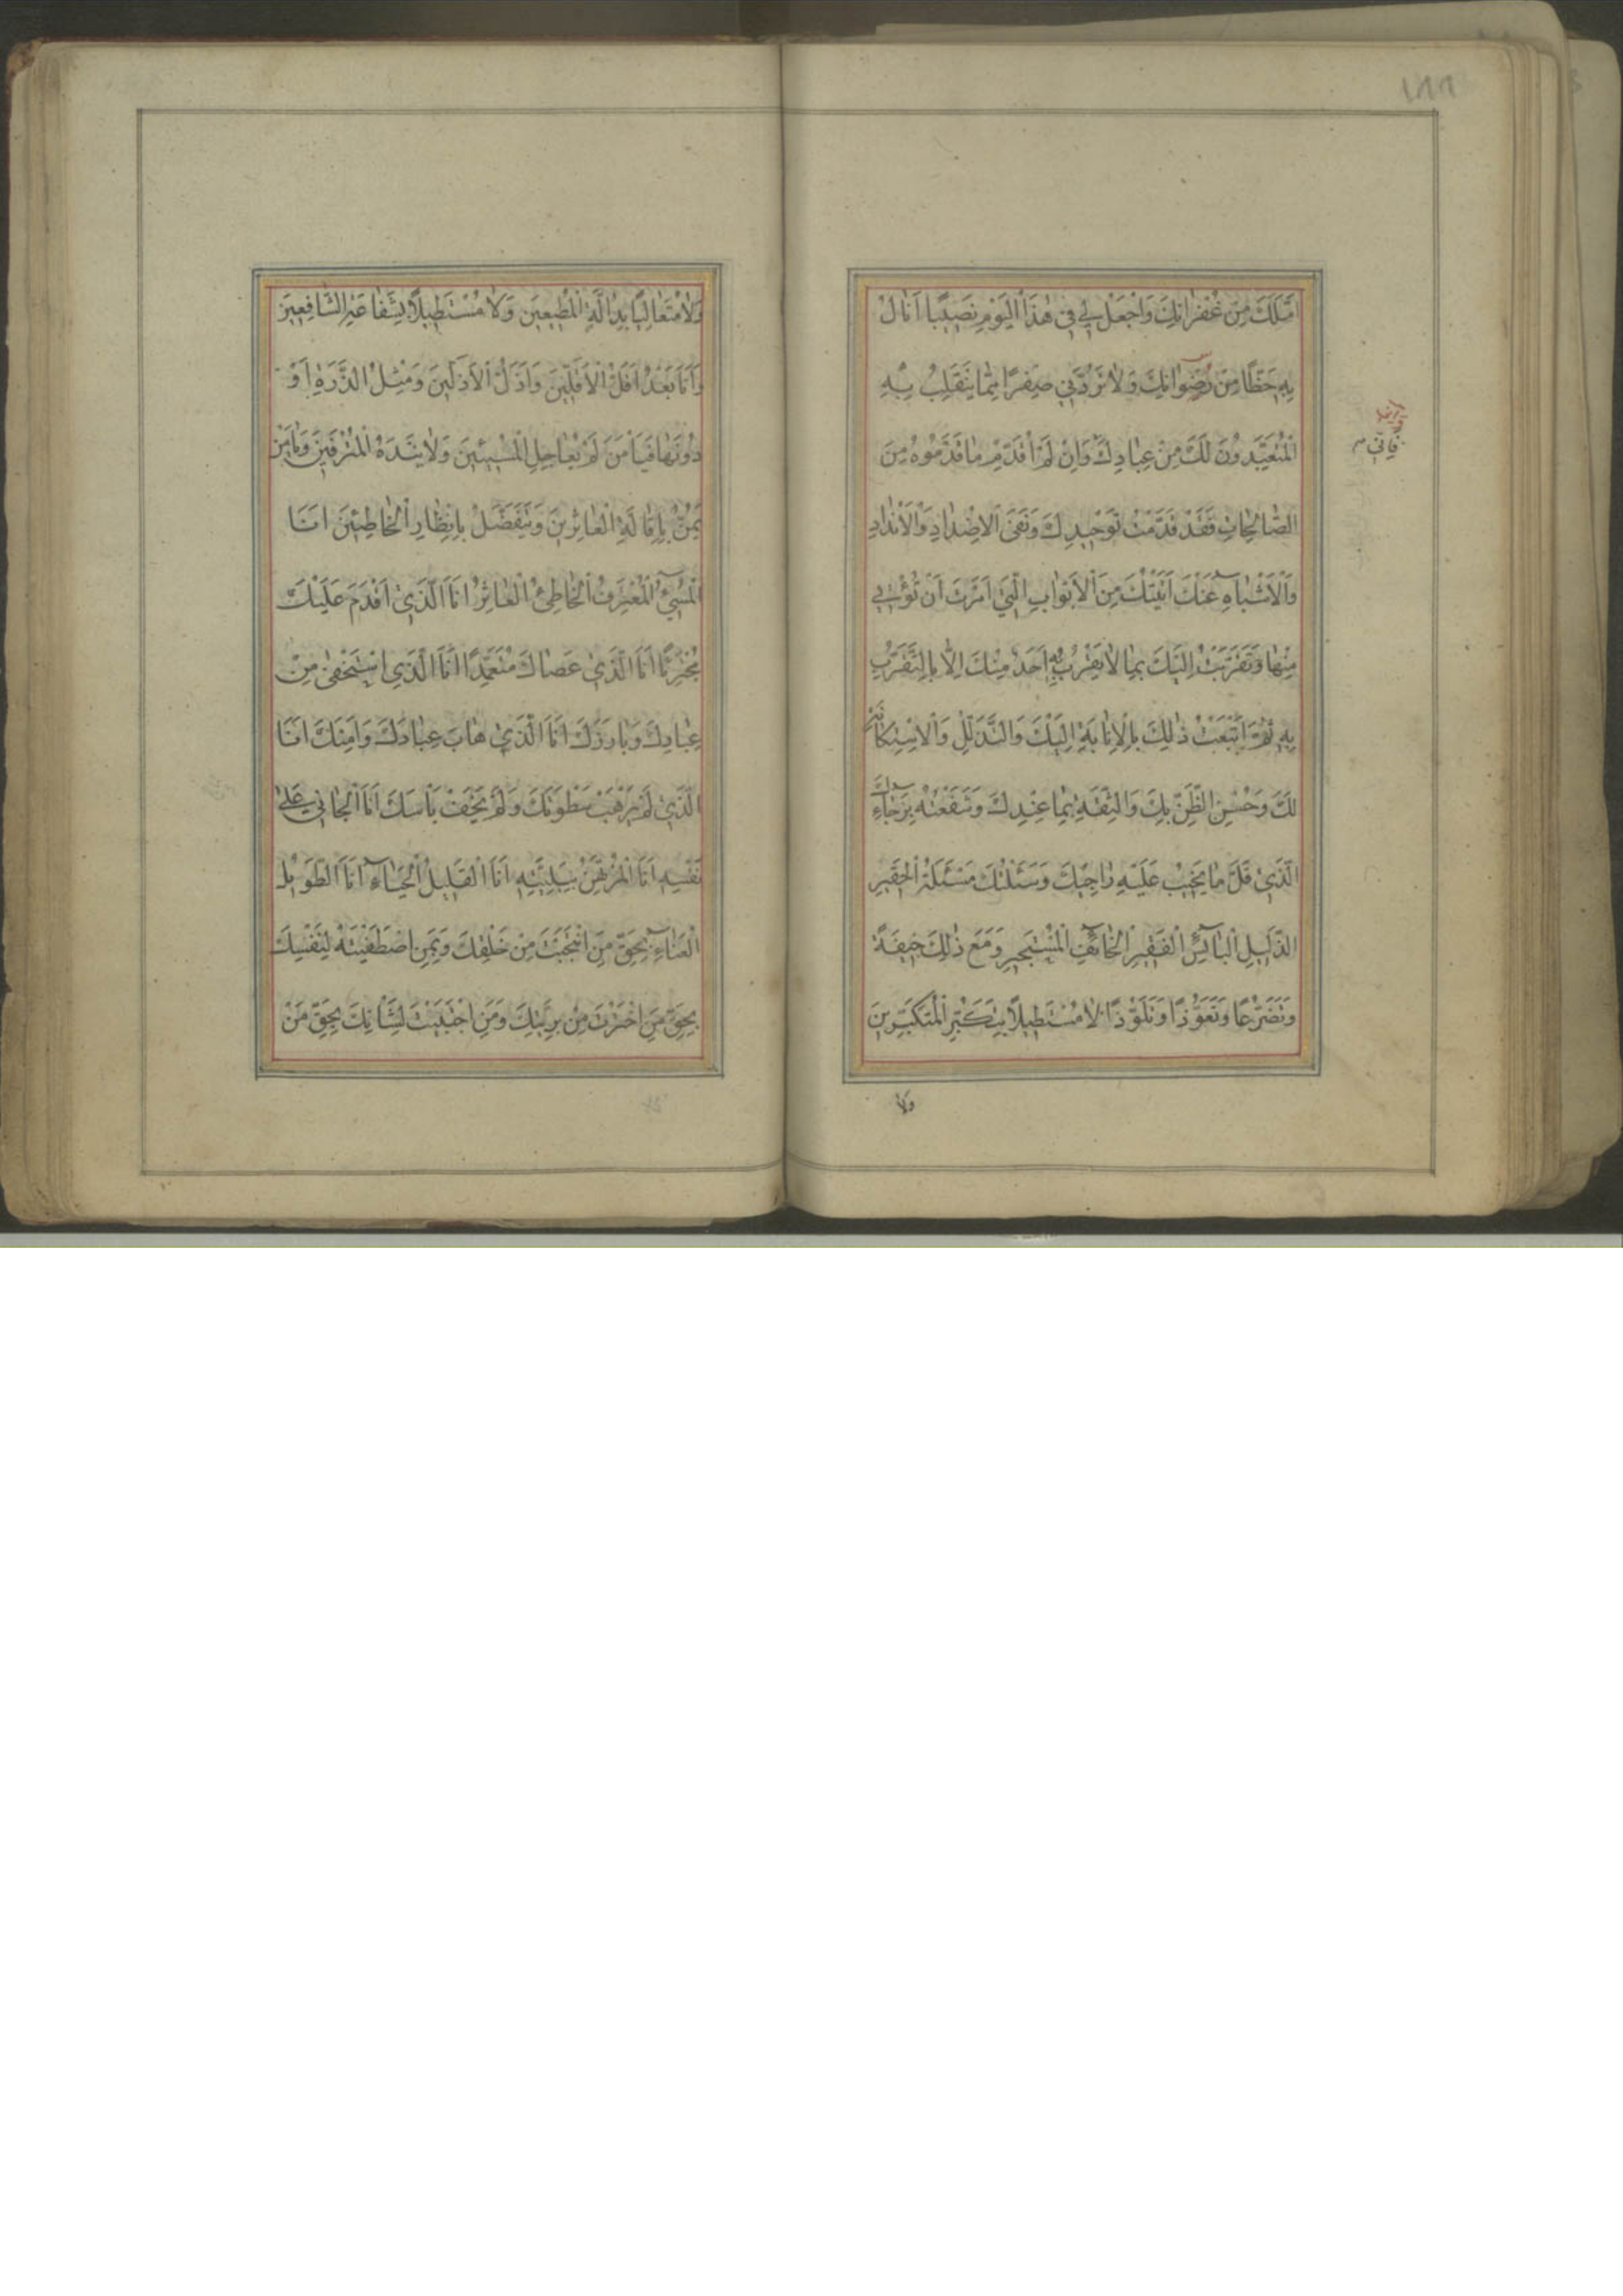 ١٨٨
اَمَّلَكَ مِنْ غُفْرَانِكَ وَاجْعَلْ لِي فِي هٰذَا الْيَوْمِ نَصِيْبًا اَنَالُ
بِهِ حَظًّا مِنْ رِضْوَانِكَ وَلَا تَرُدَّنِي صِفْرًا مِمَّا يَنْقَلِبُ بِهِ
الْمُتَعَبِّدُونَ لَكَ مِنْ عِبَادِكَ وَاِنْ لَمْ اُقَدِّمْ مَا قَدَّمُوهُ مِنَ
وَاِنّي
الصَّالِحَاتِ فَقَدْ قَدَّمْتُ تَوْحِيدَكَ وَنَفْيَ الْاَضْدَادِ وَالْاَنْدَادِ
وَالْاَشْبَاهِ عَنْكَ اَتَيْتُكَ مِنَ الْاَبْوَابِ الَّتِي اَمَرْتَ اَنْ تُؤْتٰى
مِنْهَا وَتَقَرَّبْتُ اِلَيْكَ بِمَا لَا يَقْرُبُ بِهِ اَحَدٌ مِنْكَ اِلَّا بِالتَّقَرُّبِ
بِهِ ثُمَّ اَتْبَعْتُ ذٰلِكَ بِالْاِنَابَةِ اِلَيْكَ وَالتَّذَلُّلِ وَالْاِسْتِكَانَةِ
لَكَ وَحُسْنِ الظَّنِّ بِكَ وَالثِّقَةِ بِمَا عِنْدَكَ وَشَفَعْتُهُ بِرَجَاءِكَ
الَّذِي قَلَّ مَا يَخِيبُ عَلَيْهِ رَاجِيكَ وَسَئَلْتُكَ مَسْئَلَةَ الْحَقِيرِ
الذَّلِيلِ الْبَآئِسِ الْفَقِيرِ الْخَآئِفِ الْمُسْتَجِيرِ وَمَعَ ذٰلِكَ خِيفَةً
وَتَضَرُّعًا وَتَعَوُّذًا وَتَلَوُّذًا لَا مُسْتَطِيلًا بِتَكَبُّرِ الْمُتَكَبِّرِينَ
ولا
وَلَا مُتَعَالِيًا بِدَالَّةِ الْمُطِيعِينَ وَلَا مُسْتَطِيلًا بِشَفَاعَةِ الشَّافِعِينَ
وَاَنَا بَعْدُ اَقَلُّ الْاَقَلِّينَ وَاَذَلُّ الْاَذَلِّينَ وَمِثْلُ الذَّرَّةِ اَوْ
دُونَهَا فَيَا مَنْ لَمْ يُعَاجِلِ الْمُسِيئِينَ وَلَا يَنْدَهُ الْمُتْرَفِينَ وَيَا مَنْ
يَمُنُّ بِاِقَالَةِ الْعَاثِرِينَ وَيَتَفَضَّلُ بِاِنْظَارِ الْخَاطِئِينَ اَنَا
الْمُسِيئُ الْمُعْتَرِفُ الْخَاطِئُ الْعَاثِرُ اَنَا الَّذِي اَقْدَمَ عَلَيْكَ
مُجْتَرِئًا اَنَا الَّذِي عَصَاكَ مُتَعَمِّدًا اَنَا الَّذِي اسْتَخْفٰى مِنْ
عِبَادِكَ وَبَارَزَكَ اَنَا الَّذِي هَابَ عِبَادَكَ وَاَمِنَكَ اَنَا
الَّذِي لَمْ يَرْهَبْ سَطْوَتَكَ وَلَمْ يَخَفْ بَاْسَكَ اَنَا الْجَانِي عَلٰى
نَفْسِهِ اَنَا الْمُرْتَهَنُ بِبَلِيَّتِهِ اَنَا الْقَلِيلُ الْحَيَآءِ اَنَا الطَّوِيلُ
الْعَنَآءِ بِحَقِّ مَنِ انْتَجَبْتَ مِنْ خَلْقِكَ وَبِمَنِ اصْطَفَيْتَهُ لِنَفْسِكَ
بِحَقِّ مَنِ اخْتَرْتَ مِنْ بَرِيَّتِكَ وَمَنِ اجْتَبَيْتَ لِشَأْنِكَ بِحَقِّ مَنْ